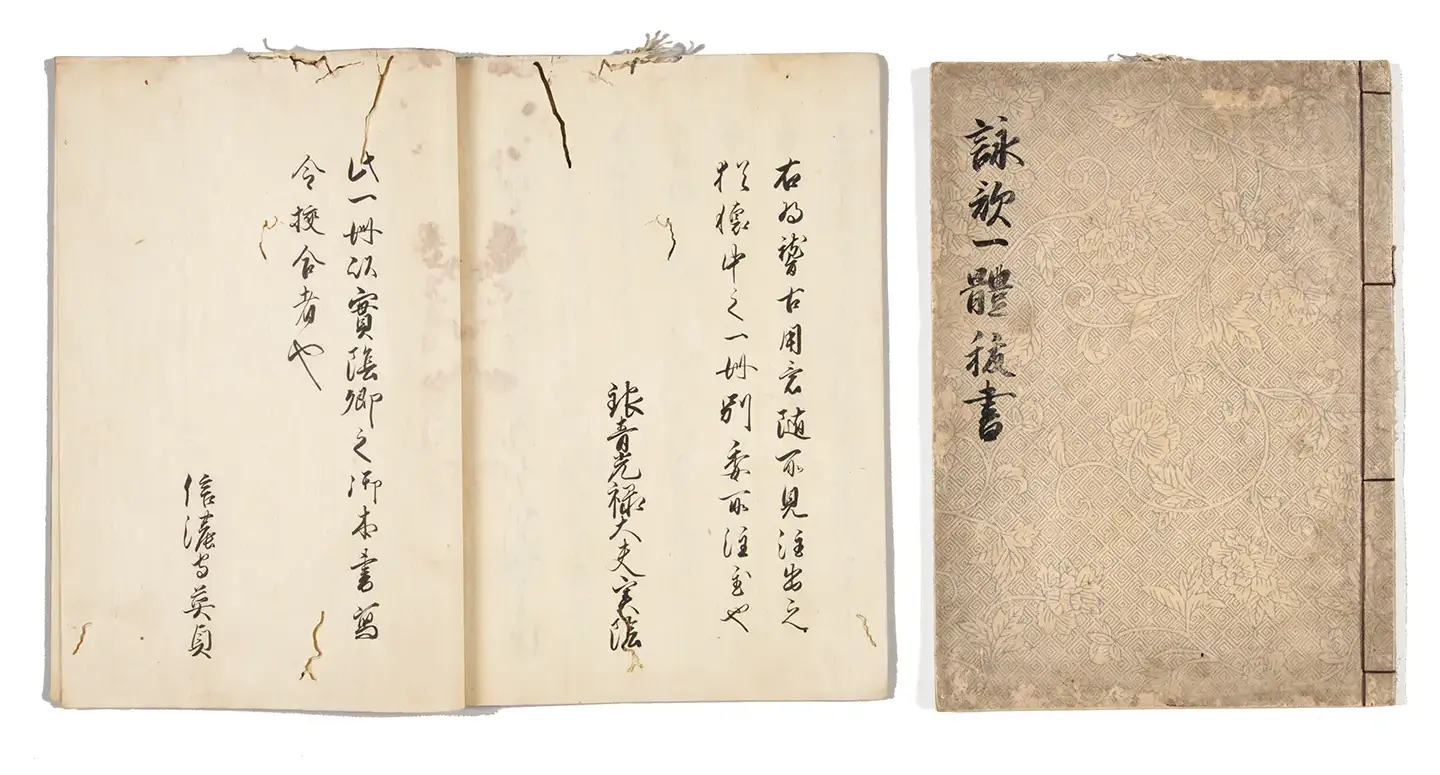 詠歌一體書
右為稽古用意随所見注出之
猶懐中之一冊別委所注置也
銀青光禄大夫実陰
此一冊以實陰卿之御本書寫
令挍合者也
信濃守英貞